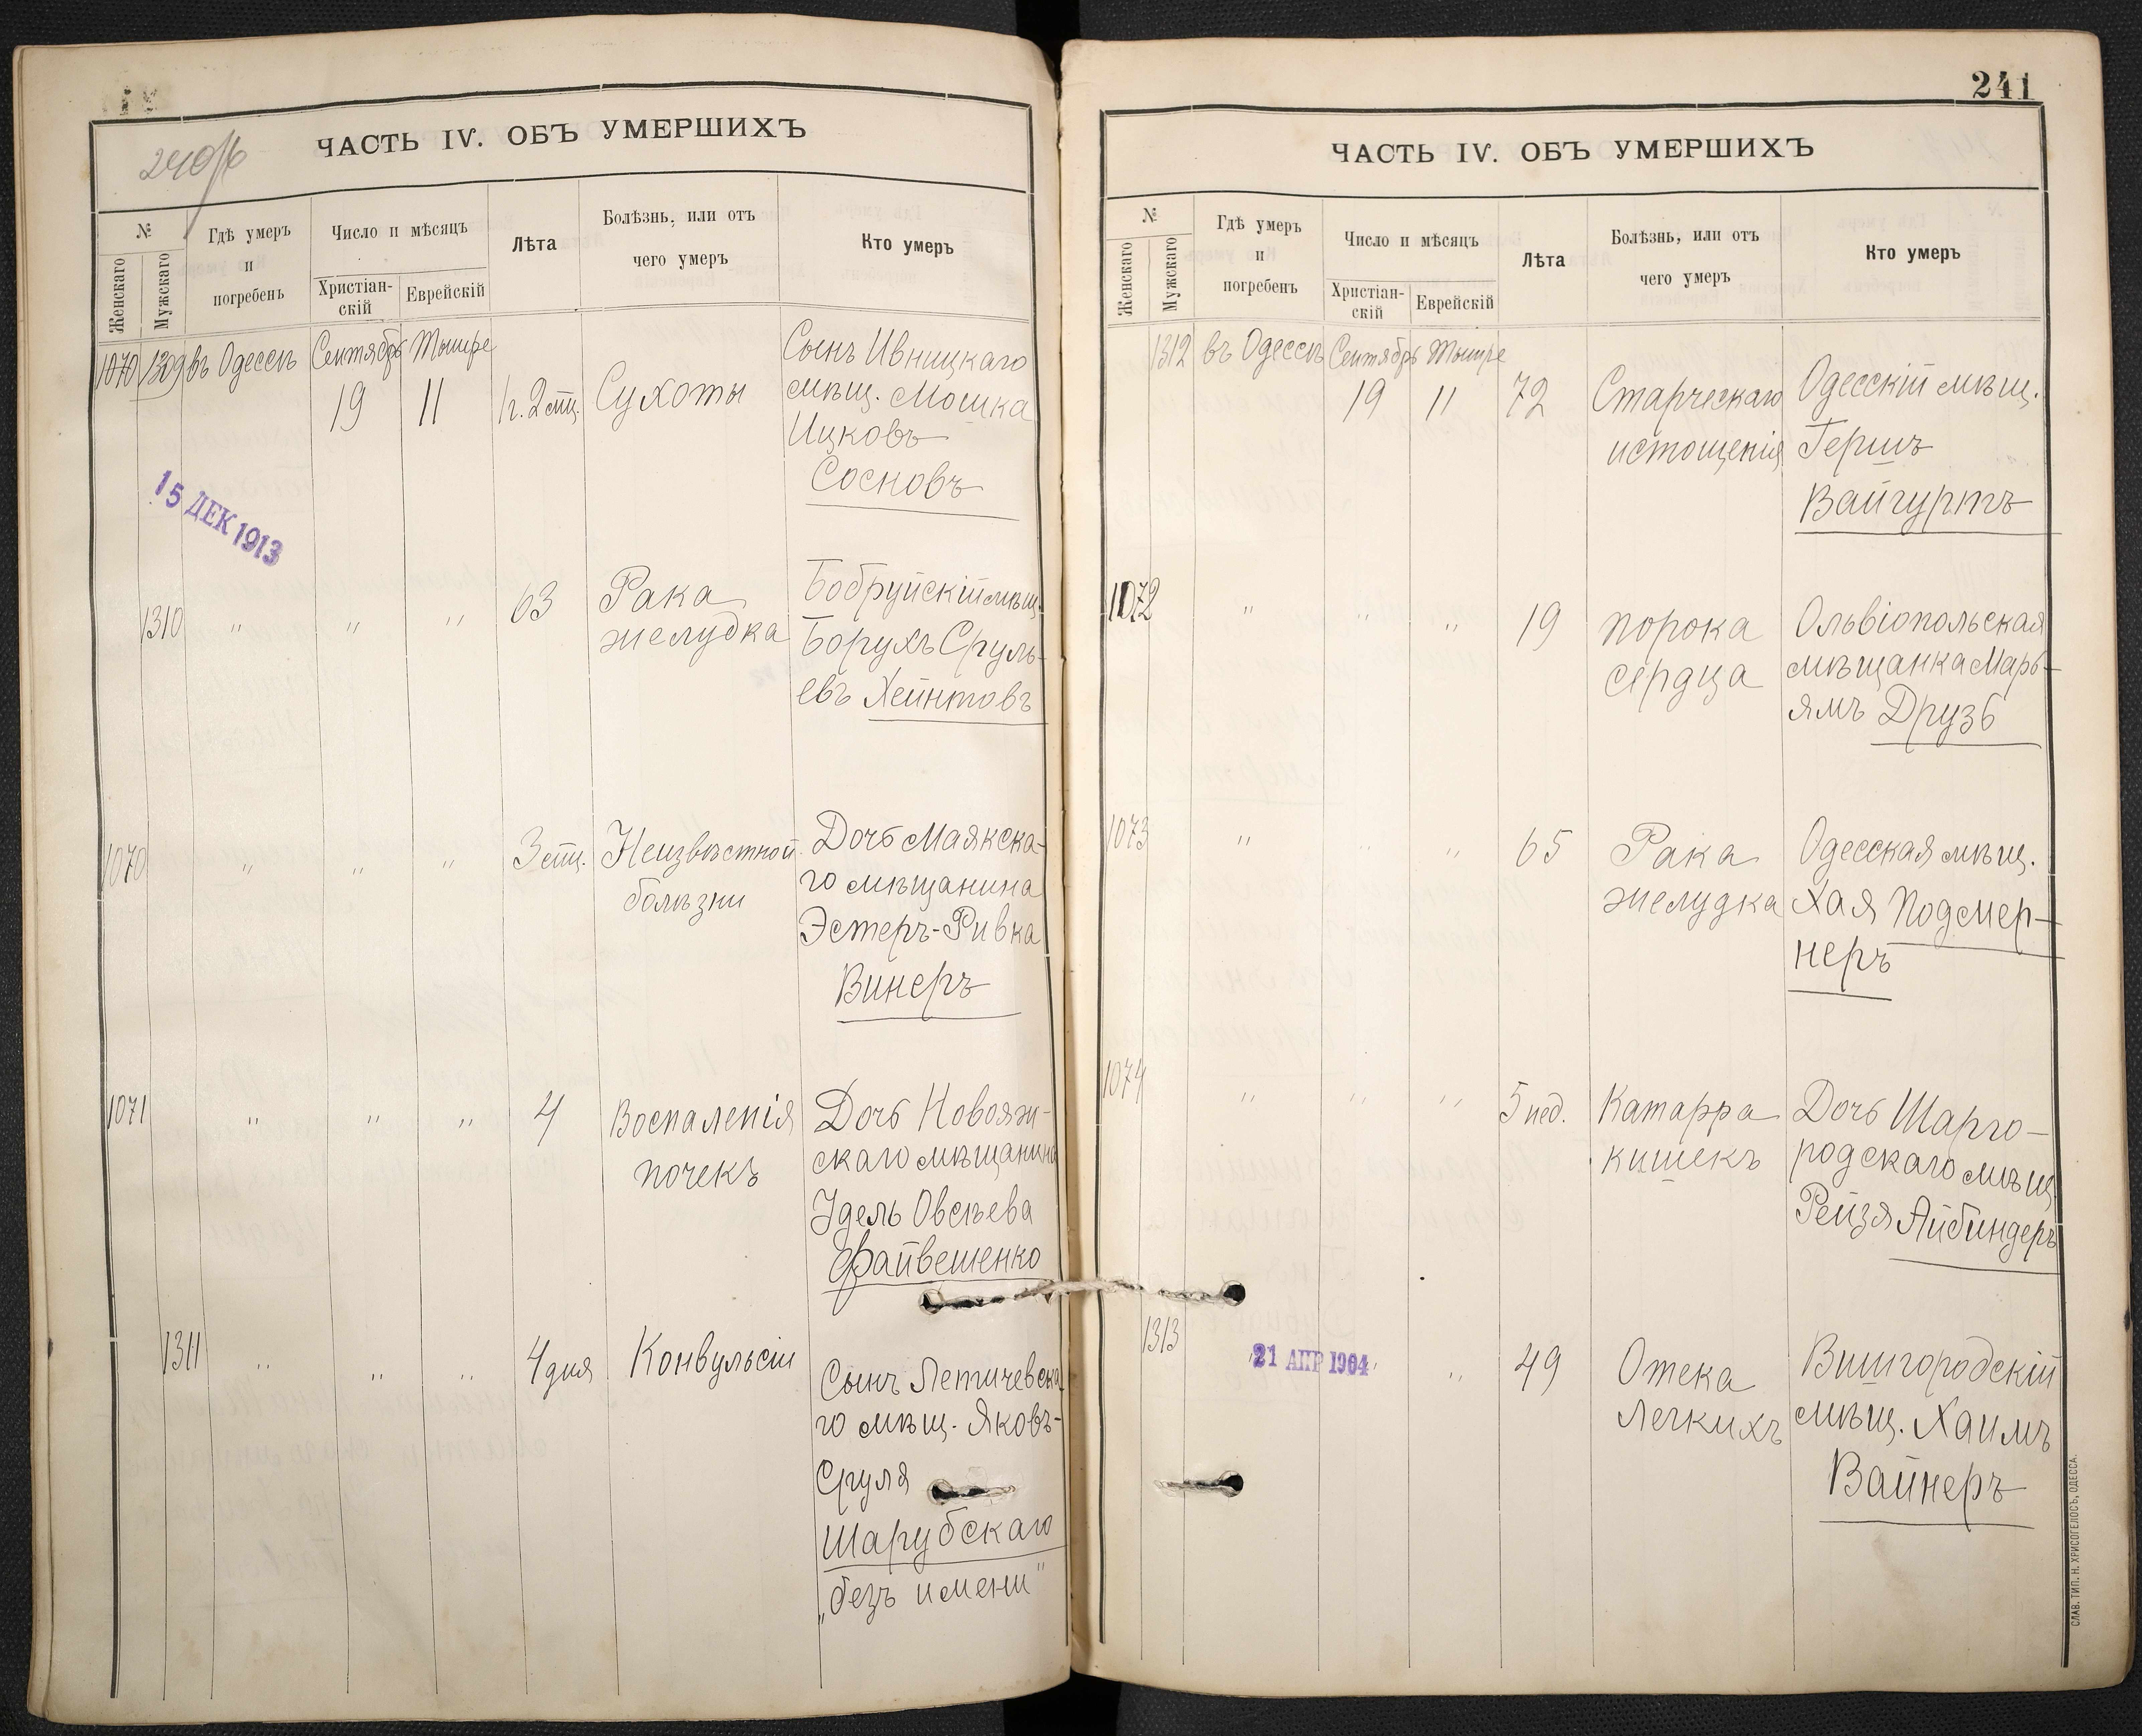 240 об
ЧАСТЬ IV. ОБЪ УМЕРШИХЪ
№
Женскаго
Мужскаго
Гдѣ умеръ
и
погребенъ
Число и мѣсяцъ
Христіан-
скій
Еврейскій
Лѣта
Болѣзнь, или отъ
чего умеръ
Кто умеръ
1070 1309 въ Одессѣ Сентябрь Тишре
19 11 1 г. 2 мц. Сухоты
Сынъ Ивницкаго
мѣщ. Мошка
Ицковъ
Сосновъ
15 ДЕК 1913
1310 " " " 63 Рака
желудка
Бобруйскій мѣщ.
Борухъ Сруль-
евъ Хейнтовъ
1070 " " " 3 мц. Неизвѣстной
болѣзни
Дочь Маякска-
го мѣщанина
Эстеръ-Ривка
Винеръ
1071 " " " 4 Воспаленія
почекъ
Дочь Новояж-
скаго мѣщанина
Удель Овсѣева
Файвешенко
1311 " " " 4 дня Конвульсіи
Сынъ Летичевска
го мѣщ. Яковъ-
Сруля
Шарубскаго
„безъ имени"
241
ЧАСТЬ IV. ОБЪ УМЕРШИХЪ
№
Женскаго
Мужскаго
Гдѣ умеръ
и
погребенъ
Число и мѣсяцъ
Христіан-
скій
Еврейскій
Лѣта
Болѣзнь, или отъ
чего умеръ
Кто умеръ
1312 въ Одессѣ Сентябрь Тишре
19 11 72 Старческаго
истощенія
Одесскій мѣщ.
Гершъ
Вайгуртъ
1072 " " " 19 порока
сердца
Ольвіопольская
мѣщанка Марь-
ямъ Друзь
1073 " " " 65 Рака
желудка
Одесская мѣщ.
Хая Подмер-
неръ
1074 " " " 5 нед. Катарра
кишекъ
Дочь Шарго-
родскаго мѣщ
Рейзя Айбиндеръ
1313 21 АПР 1904 " 49 Отека
Легкихъ
Вышгородскій
мѣщ. Хаимъ
Вайнеръ
СЛАВ. ТИП. Н. ХРИСОГЕЛОСЪ, ОДЕССА.